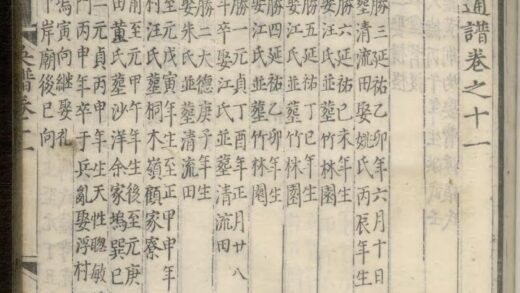 通譜卷之十一
勝三延祐乙卯年六月十日
葬清流田娶姚氏丙辰年生
勝六延祐己未年生
娶江氏並葬竹林園
勝四延祐丁巳年生
娶江氏並葬竹林園
勝一元貞丁酉年正月廿八
年卒娶江氏並葬清流田
勝二大德庚子年生
娶朱氏並葬清流田
至元戊寅年生至正甲申年
村汪氏葬桐木嶺顧家寮
前至元甲午年生後至元庚
田董氏葬沙洋余家塢巽巳
二元貞丙申年生天性聰敏
丙申年卒于兵亂娶浮村
塢寅向繼娶礼
岸廟後巳向
譜卷十一